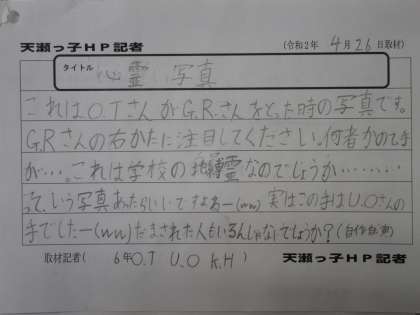 天瀬っ子HP記者 (令和2年 4月26日取材)
タイトル 心霊 写真
これはO.TさんがG.R.さんをとった時の写真です。
G.Rさんの右かたに注目してください。何者かの手
が…。これは学校の地縛霊なのでしょうか………
って、いう写真あったらいいですよねー(ww) 実はこの手はU.Oさんの
手でしたー(ww)だまされた人もいるんじゃないでしょうか?(自作自演)
取材記者( 6年O.T U.O K.H ) 天瀬っ子HP記者